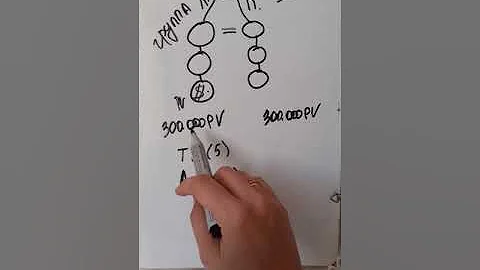 группа Л. П.
=
$
IV
300.000PV 300.000PV
T (5)